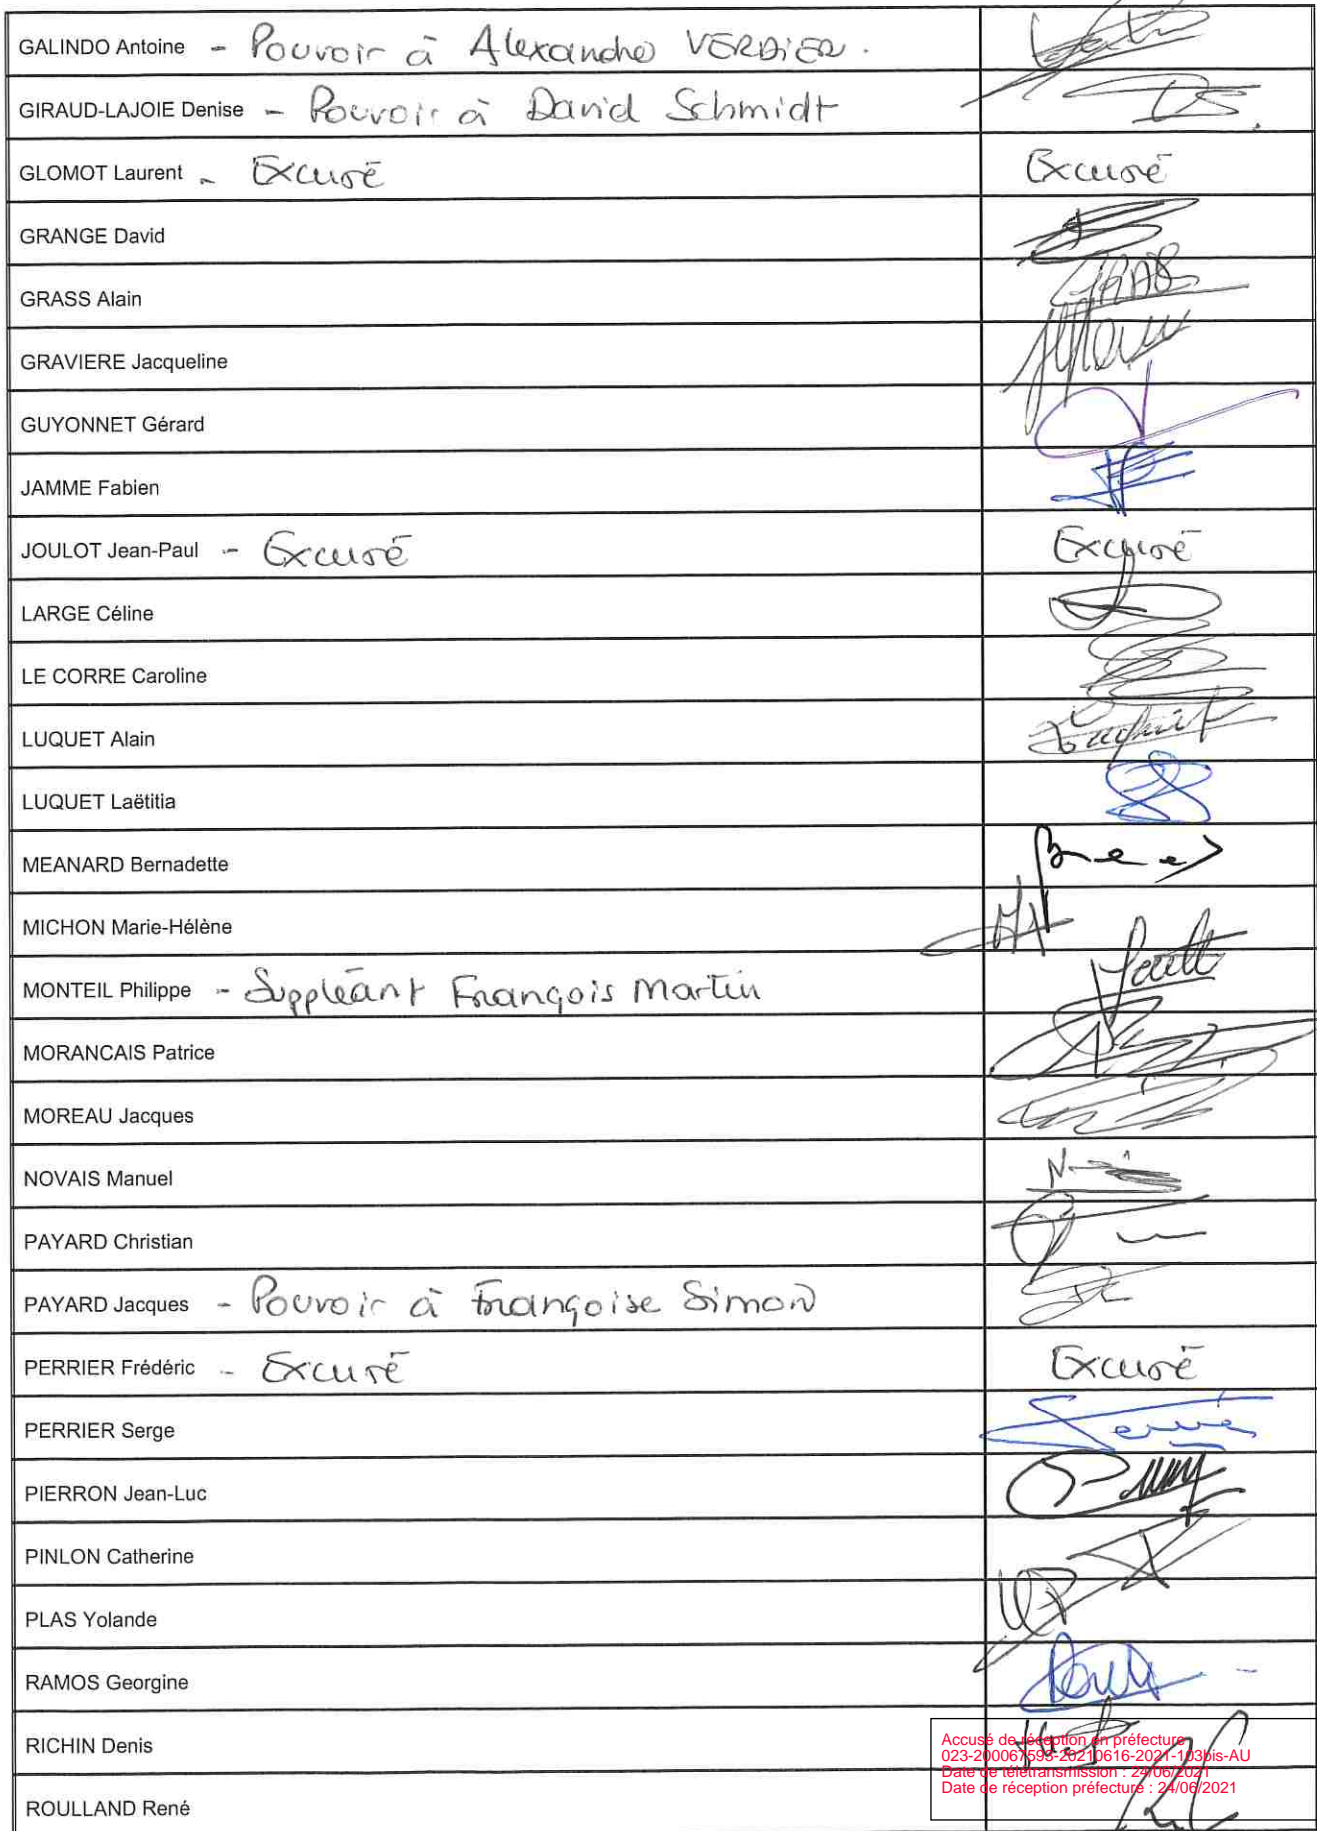 GALINDO Antoine - Pouvoir à Alexandre VERDIER.
GIRAUD-LAJOIE Denise - Pouvoir à David Schmidt DS.
GLOMOT Laurent - Excusé Excusé
GRANGE David
GRASS Alain
GRAVIERE Jacqueline
GUYONNET Gérard
JAMME Fabien
JOULOT Jean-Paul - Excusé Excusé
LARGE Céline
LE CORRE Caroline
LUQUET Alain
LUQUET Laëtitia
MEANARD Bernadette
MICHON Marie-Hélène
MONTEIL Philippe - Suppléant François Martin
MORANCAIS Patrice
MOREAU Jacques
NOVAIS Manuel
PAYARD Christian
PAYARD Jacques - Pouvoir à Françoise Simon
PERRIER Frédéric - Excusé Excusé
PERRIER Serge
PIERRON Jean-Luc
PINLON Catherine
PLAS Yolande
RAMOS Georgine
RICHIN Denis
ROULLAND René
Accusé de réception en préfecture
023-200067593-20210616-2021-103bis-AU
Date de télétransmission : 24/06/2021
Date de réception préfecture : 24/06/2021